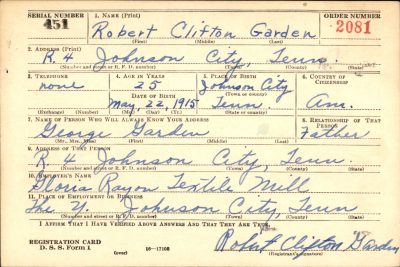 SERIAL NUMBER 1. NAME (Print) ORDER NUMBER
451 Robert Clifton Garden 2081
(First) (Middle) (Last)
2. ADDRESS (Print)
R. 4 Johnson City, Tenn.
(Number and street or R. F. D. number) (Town) (County) (State)
3. TELEPHONE 4. AGE IN YEARS 5. PLACE OF BIRTH 6. COUNTRY OF CITIZENSHIP
none 25 Johnson City
DATE OF BIRTH (Town or county)
May, 22, 1915 Tenn. Am.
(Exchange) (Number) (Mo.) (Day) (Yr.) (State or country)
7. NAME OF PERSON WHO WILL ALWAYS KNOW YOUR ADDRESS 8. RELATIONSHIP OF THAT PERSON
George Garden Father
(Mr., Mrs., Miss) (First) (Middle) (Last)
9. ADDRESS OF THAT PERSON
R. 4 Johnson City, Tenn.
(Number and street or R. F. D. number) (Town) (County) (State)
10. EMPLOYER'S NAME
Rayon Textile Mill
11. PLACE OF EMPLOYMENT OR BUSINESS
Johnson City, Tenn
(Number and street or R. F. D. number) (Town) (County) (State)
I AFFIRM THAT I HAVE VERIFIED ABOVE ANSWERS AND THAT THEY ARE TRUE.
REGISTRATION CARD Robert Clifton Garden
D. S. S. Form 1 (over) 16—17105 (Registrant's signature)